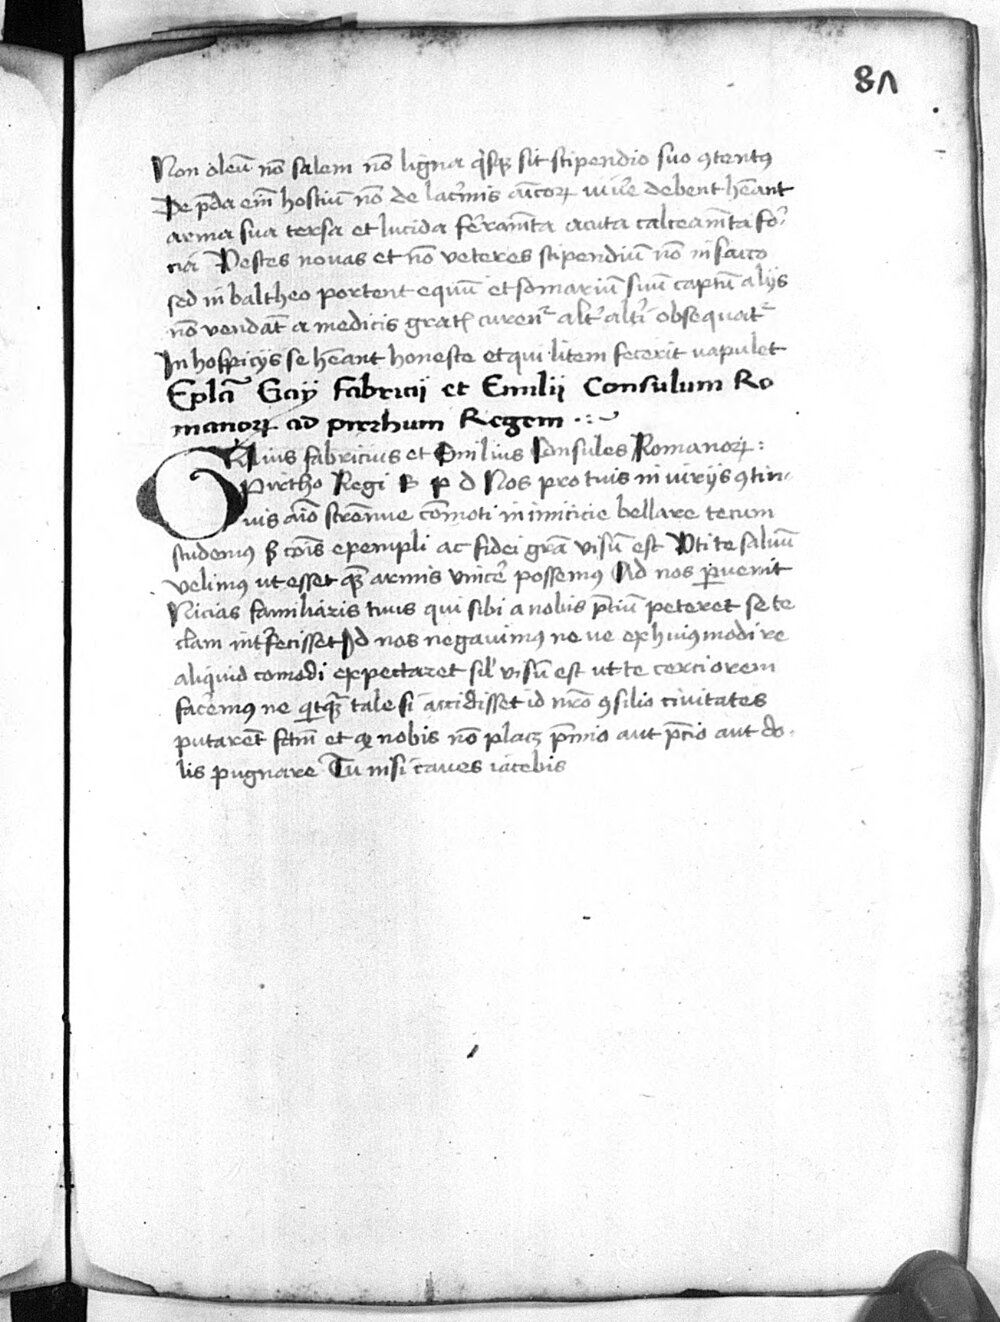 8Λ
Non oleū nō salem nō ligna q̇sqꝫ sit stipendio suo ꝯtentꝰ
De p̄da em̄ hostiū nō de lacr̄mis aīcorꝝ viue᷑ debent hēant
arma sua tersa et lucida fe᷑ram̄ta acuta calceam̄ta fo᷑
cia Vestes novas et nō veteres stipendiū nō in
sed in baltheo portent equū et somariū suū captū alijs
nō vendāt a medicis gratꝭ curen᷑ alt᷑ alt᷑i obsequat᷑
In hospicijs se hēant honeste et qui litem fecerit vapulet
Epl̄a Gaij fabricij et Emilij Consulum Ro
manorꝝ ad pirrhum Regem
GAius fabricius et Emilius Consules Romanorꝝ
Pirrho Regi S p d Nos pro tuis iniurijs ꝯtin
uis aīo strēnue cōmoti inimicicie bellare tecum
studemꝰ ꝫ cōis exempli ac fidei grā visū est Vti te saluū
velimꝰ ut esset quē armis vince᷑ possemꝰ Ad nos ꝑuenit
Nicias familiaris tuus qui sibi a nobis p̄tiū peteret se te
clam int᷑fecisset Id nos negauimꝰ ne ve ex huiꝰmodi re
aliquid comodi expectaret sil̄ visū est ut te cerciorem
face᷑mꝰ ne q̇tqꝫ tale si accidisset id nr̄o ꝯsilio civitates
putarēt fc̄m et ꝙ nobis nō placꝫ p̄mio aut p̄cio aut do
lis pugnare Tu nisi caves iacebis